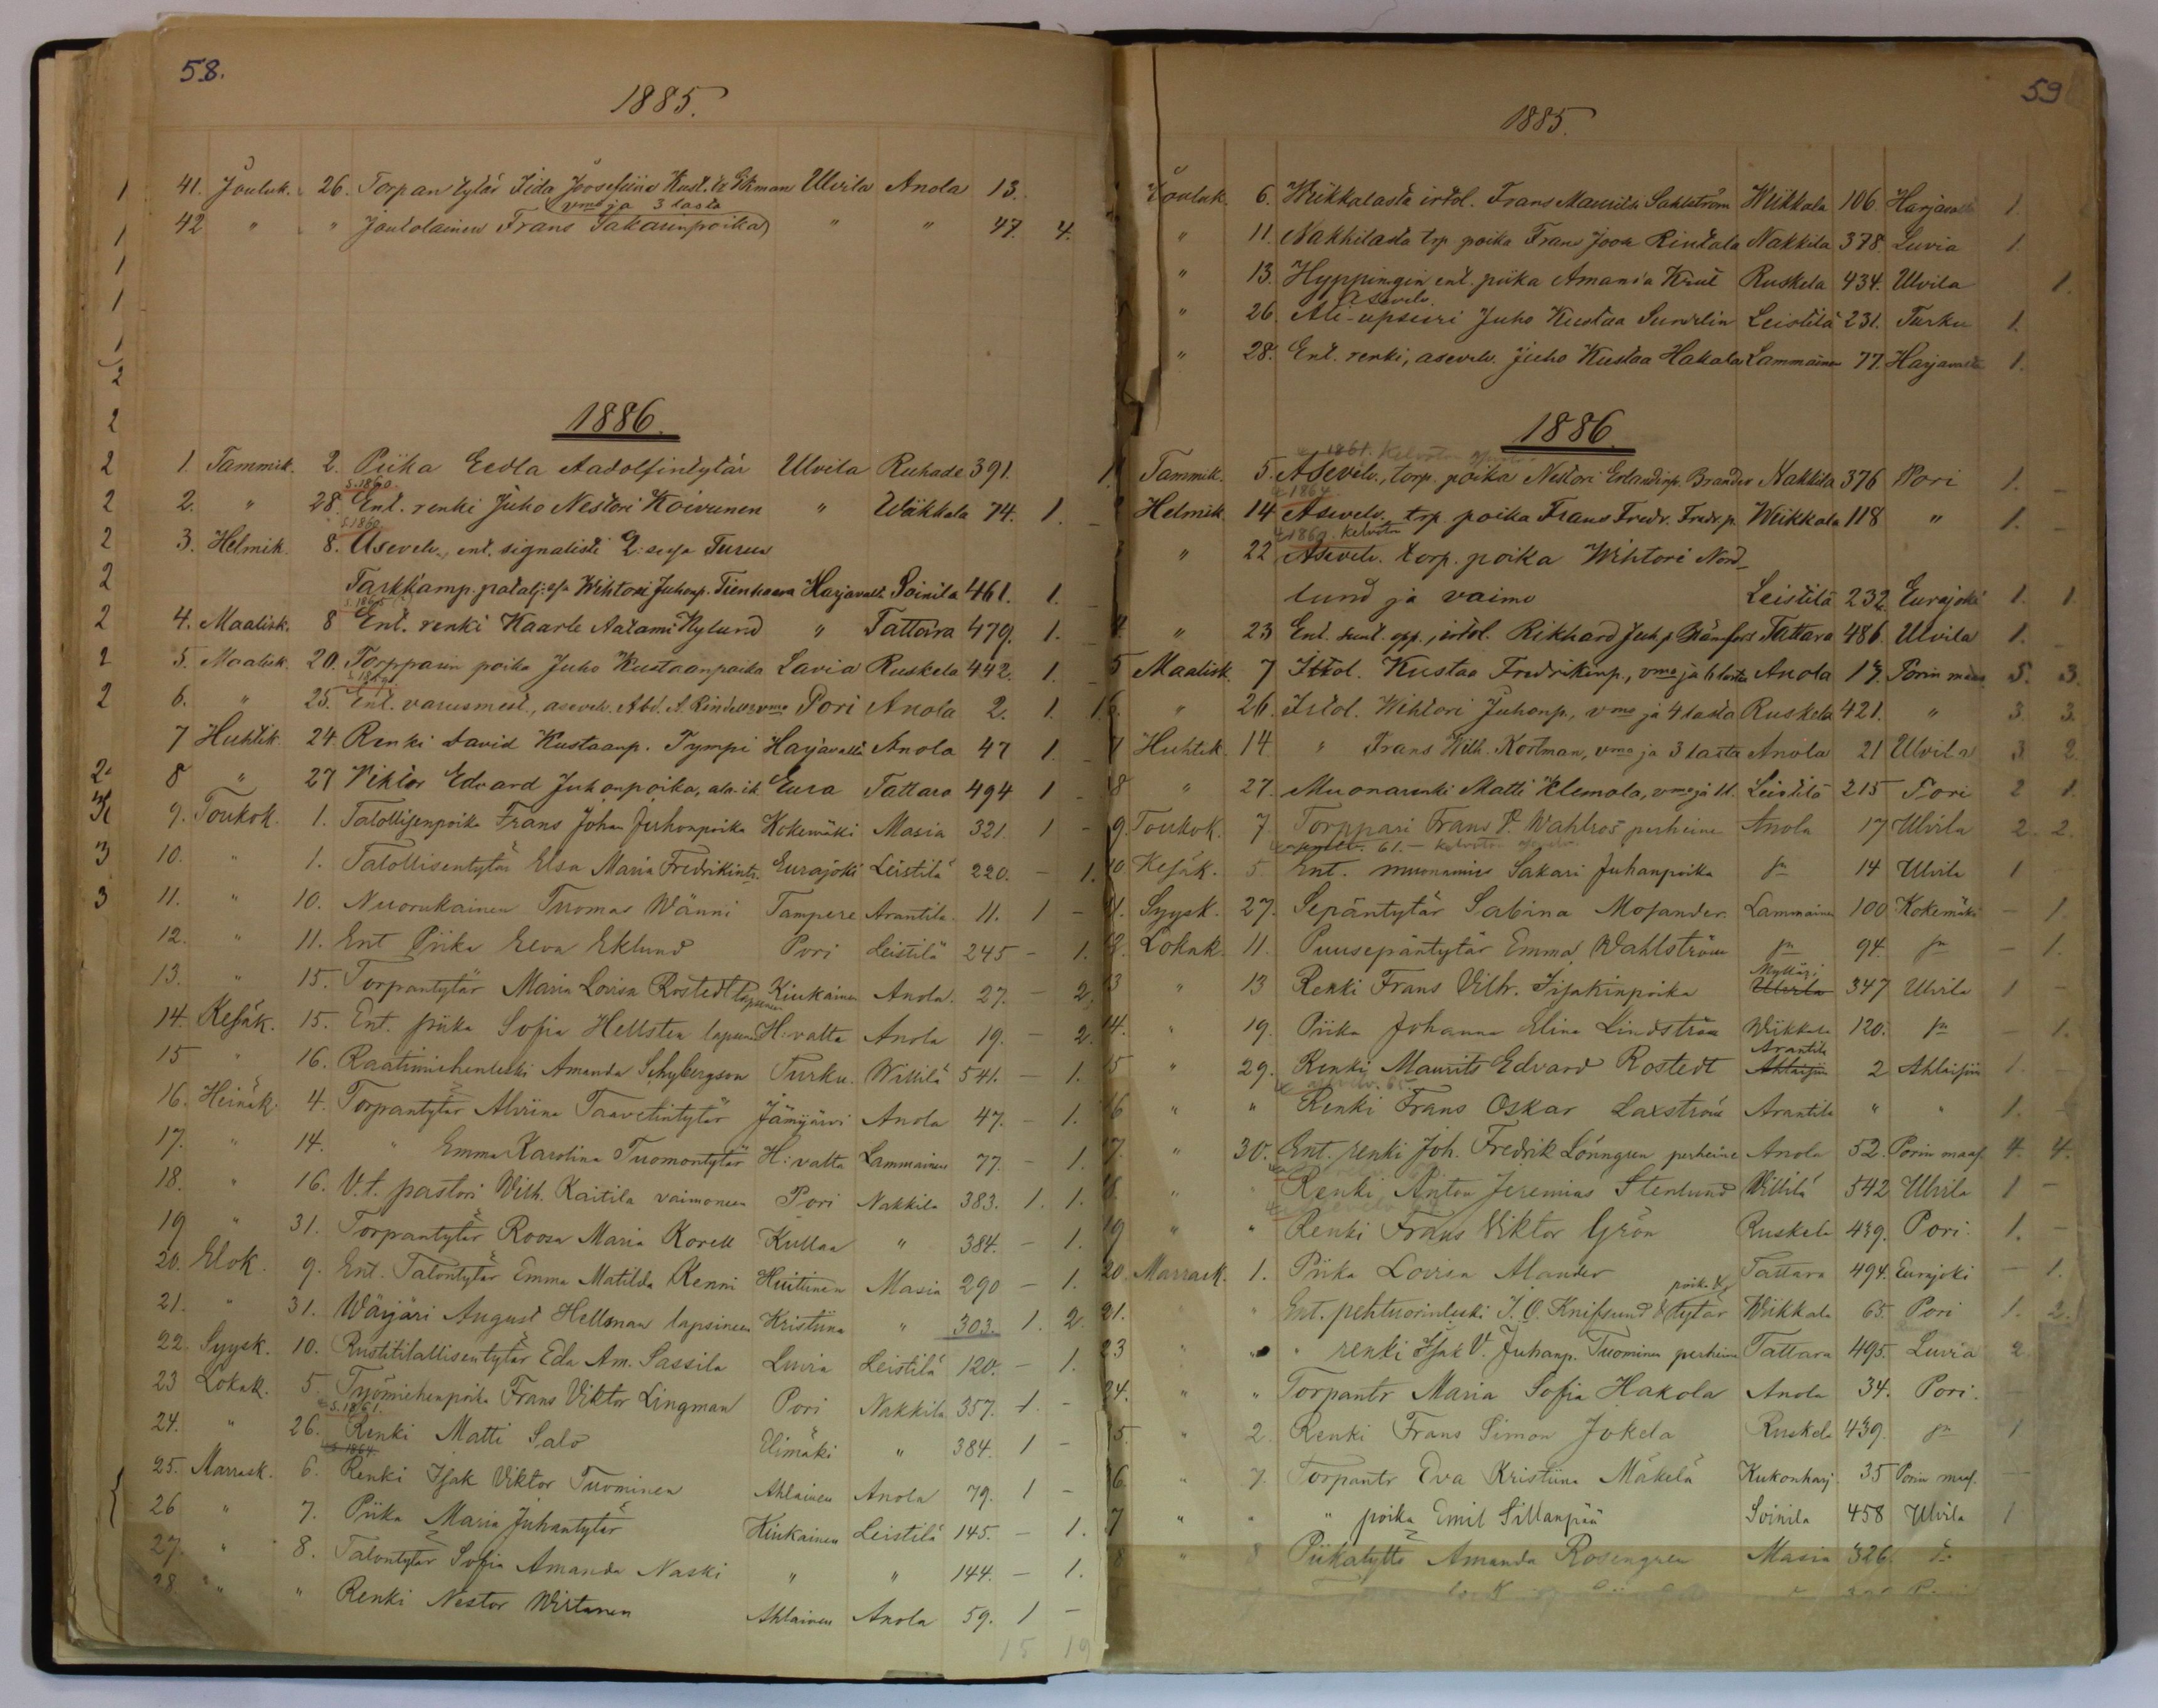 58.
1885.
41. Jouluk. 26. Torpan tytär Iida Joosefiina Kust. tr Ekman Ulvila Anola 13.
vmo ja 3 lasta
42 " " Joutolainen Frans Sakarinpoika " " 47. 4.
1886.
1. Tammik. 2. Piika Eedla Aadolfintytär Ulvila Ruhade 391. 1.
s. 1860.
2. " 28. Ent. renki Juho Nestori Koivunen " Wiikkala 74. 1. -
s. 1860.
3. Helmik. 8. Asevelv., ent. signalisti 2:sessa Turun
Tarkkamp. patalj:ssa Wihtori Juhonp. Tienhaara Harjavalt. Soinila 461. 1. -
s. 1865
4. Maalisk. 8 Ent. renki Kaarle Aatami Nylund " Tattara 479. 1. -
5. Maalisk. 20. Torpparin poika Juho Kustaanpoika Lavia Ruskela 442. 1. -
6. " 25. Ent. varusmest., asevelv. Abd. A. Rindell & vmo Pori Anola 2. 1. 1.
7 Huhtik. 24. Renki David Kustaanp. Tympi Harjavalta Anola 47 1. -
8 " 27 Viktor Edvard Juhonpoika, ala-ik. Eura Tattara 494 1 -
9. Toukok. 1. Talollisenpoika Frans Johan Juhonpoika Kokemäki Masia 321. 1 -
10. " 1. Talollisentytär Elsa Maria Fredrikintr. Eurajoki Leistilä 220. - 1.
11. " 10. Nuorukainen Tuomas Wänni Tampere Arantila 11. 1 -
12. " 11. Ent Piika Eeva Eklund Pori Leistilä 245 - 1.
13. " 15. Torpantytär Maria Lovisa Rostedt lapsineen Kiukainen Anola 27. - 2.
14. Kesäk. 15. Ent. piika Sofia Hellsten lapsineen H:valta Anola 19. - 2.
15 " 16. Raatimiehenleski Amanda Schybergson Turku. Villilä 541. - 1.
16. Heinäk. 4. Torpantytär Alviina Taavetintytär Jämijärvi Anola 47. - 1.
17. " 14. " Emma Karolina Tuomontytär H:valta Lammainen 77. - 1.
18. " 16. V.t. pastori Vilh. Kaitila vaimoneen Pori Nakkila 383. 1. 1.
19 " 31. Torpantytär Roosa Maria Korell Kullaa " 384. - 1.
20. Elok. 9. Ent. Talontytär Emma Matilda Kenni Huittinen Masia 290 - 1.
21. " 31. Wärjäri August Hellman lapsineen Kristiina " 303. 1. 2.
22. Syysk. 10. Rustitilallisentytär Eda Am. Sassila Luvia Leistilä 120. - 1.
23 Lokak. 5. Työmiehenpoika Frans Viktor Lingman Pori Nakkila 357. 1. -
s. 1861.
24. " 26. Renki Matti Salo Elimäki " 384. 1 -
s. 1864.
25. Marrask. 6. Renki Isak Viktor Tuominen Ahlainen Anola 79. 1 -
26 " 7. Piika Maria Juhantytär Kiukainen Leistilä 145. - 1.
27. " 8. Talontytär Sofia Amanda Naski " " 144. - 1.
28. " " Renki Nestor Wirtanen Ahlainen Anola 59. 1 -
15 19
59
1885.
Jouluk. 6. Wiikkalasta irtol. Frans Mauritz Sahlström Wiikkala 106. Harjavalta 1.
" 11. Nakkilasta trp. poika Frans Joos. Rintala Nakkila 378. Luvia 1.
" 13. Hyppingin ent. piika Amanda Ruskela 434. Ulvila 1.
asevelv.
" 26. Ali-upseeri Juho Kustaa Sundelin Leistilä 231. Turku 1.
" 28. Ent. renki, asevelv. Juho Kustaa Hakala Lammainen 77. Harjavalta 1.
1886.
1861. Kelvoton
1 Tammik. 5. Asevelv., torp. poika Nestori Erlandinp. Brander Nakkila 376 Pori 1. -
1864
Helmik. 14 Asevelv. trp. poika Frans Fredr. Fredr.p. Wiikkala 118 " 1. -
1860. kelvoton
" 22 Asevelv. torp. poika Wihtori Nord-
lund ja vaimo Leistilä 232. Eurajoki 1. 1.
" 23 Ent. sunt. opp., irtol. Rikhard Juh.p. Tattara 486. Ulvila 1. -
5 Maalisk. 7 Irtol. Kustaa Fredrikinp., vmo ja 6 lasta Anola 17. Porin maas. 5. 3.
6. " 26. Irtol. Wihtori Juhonp., vmo ja 4 lasta Ruskela 421. " 3. 3.
7 Huhtik. 14. " Frans Wilh. Kortman, vmo ja 3 lasta Anola 21 Ulvila 3 2.
8 " 27. Muonarenki Matti Klemola, vmo ja 1 l. Leistilä 215 Pori 2 1.
9. Toukok. 7. Torppari Frans V. Wahlros perheine Anola 17 Ulvila 2. 2.
61. - kelvoton
10. Kesäk. 5 Ent. muonamies Sakari Juhanpoika Sn 14 Ulvila 1
11. Syysk. 27. Sepäntytär Sabina Mosander Lammainen 100 Kokemäki - 1.
Lokak. 11. Puusepäntytär Emma Wahlström Sn 94. Sn - 1.
Mylläri
13 " 13 Renki Frans Vilh. Iisakinpoika Ulvila 347 Ulvila 1 -
14. " 19. Piika Johanna Elina Lindström Wiikkala 120. Sn - 1.
Arantila
15 " 29. Renki Maurits Edvard Rostedt Ahlaisiin 2 Ahlaisiin 1.
asevelv. 65.
16 " " Renki Frans Oskar Laxström Arantila " " 1. -
17. " 30. Ent. renki Joh. Fredrik Lönngren perheine Anola 52. Porin maas. 4. 4.
18 " Renki Anton Jeremias Stenlund Villilä 542 Ulvila 1 -
19 " " Renki Frans Viktor Grön Ruskela 439. Pori 1. -
20. Marrask. 1. Piika Lovisa Alander Tattara 494. Eurajoki - 1.
poika &
21. " Ent. pehtuorinleski I. O. Knifsund & tytär Wiikkala 65. Pori 1. 2.
23 " " " renki Isak V. Juhanp. Tuominen perheine Tattara 495. Luvia 2
24. " " Torpantr Maria Sofia Hakola Anola 34. Pori.
5. " 2. Renki Frans Simon Jokela Ruskela 439. Sn 1
6. " 7. Torpantr Eva Kristiina Mäkelä Kukonharj. 35 Porin maas.
7 " " " poika Emil Sillanpää Soinila 458 Ulvila 1
8 " 8 Piikatyttö Amanda Rosengren Masia 326.